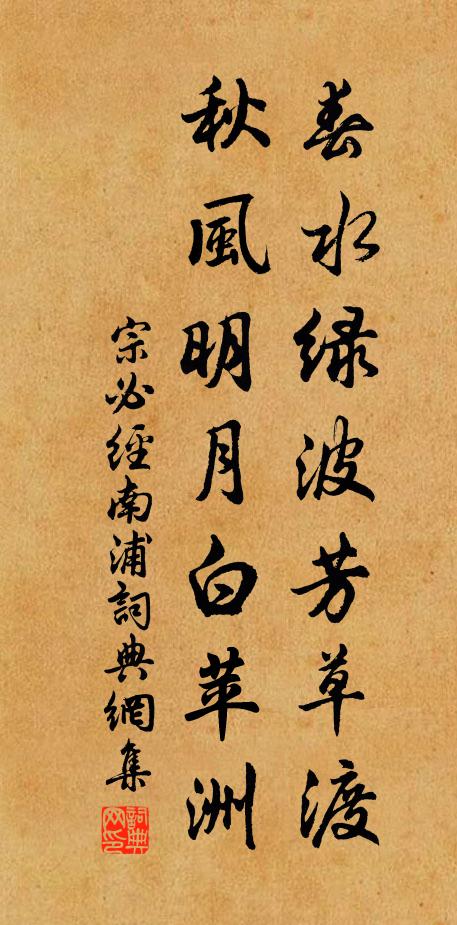 春水緑波芳草渡
秋風明月白苹洲
宗必經南浦詞典網集
詞典網印